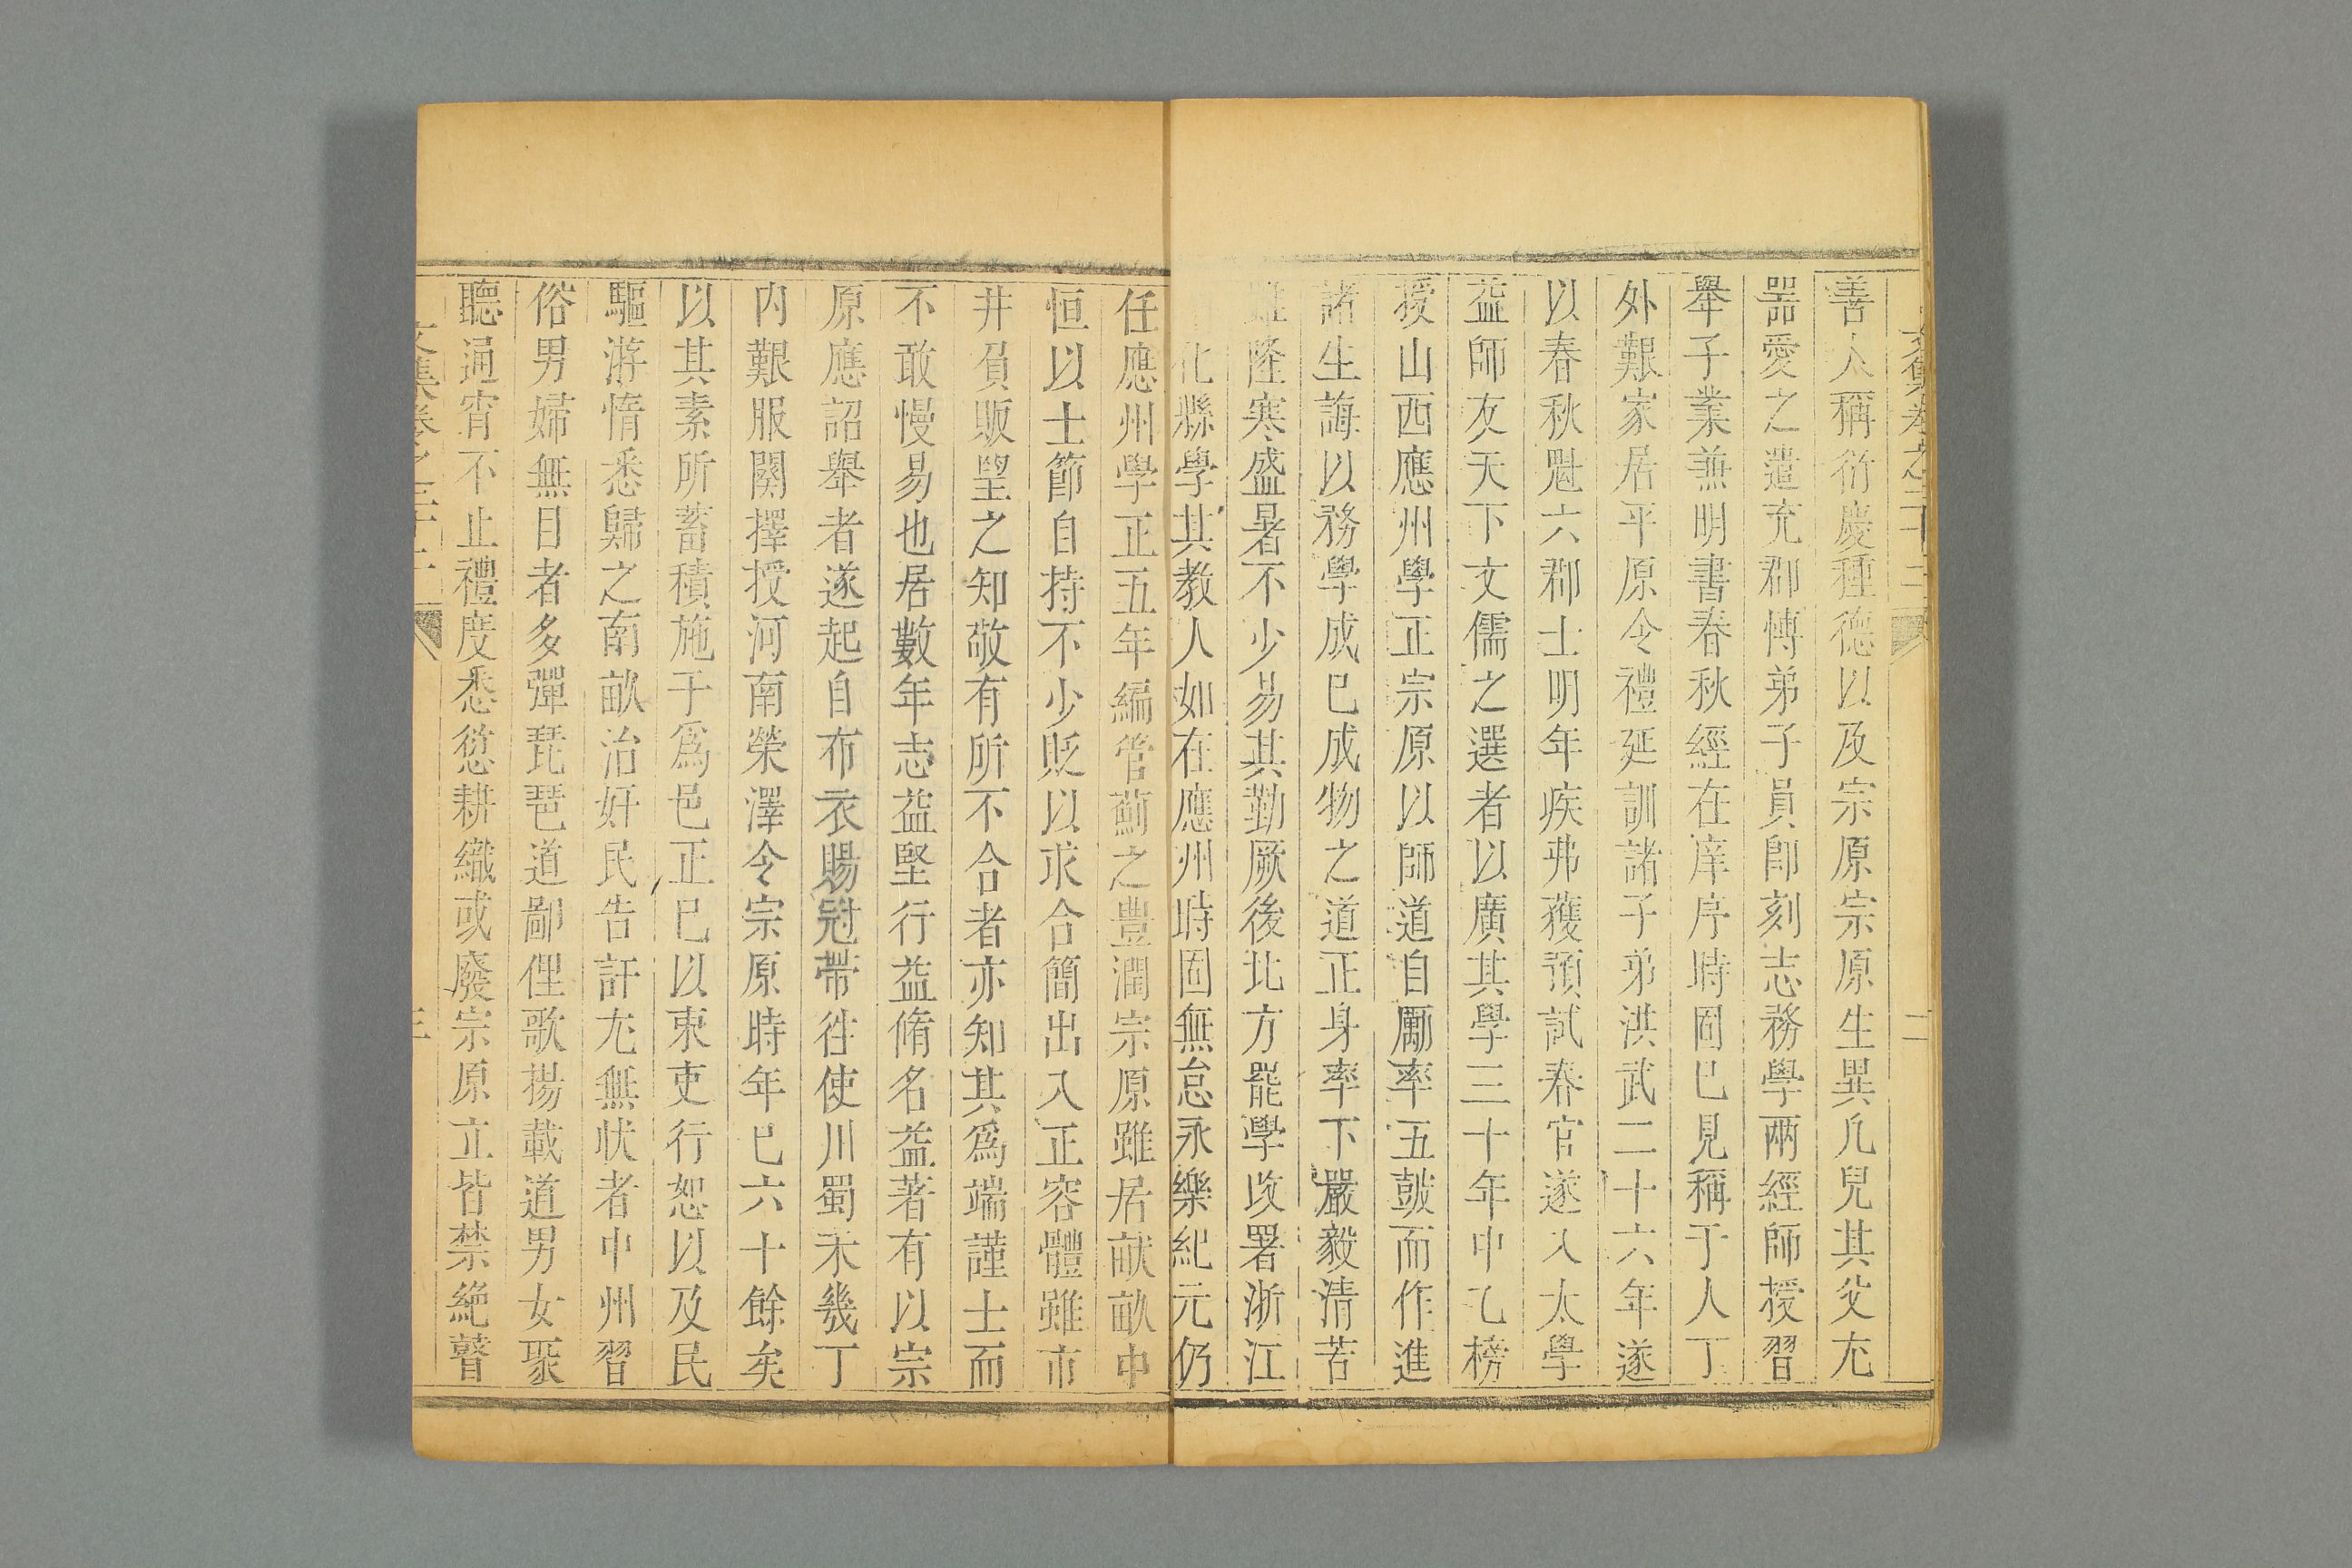 善人稱衍慶種德以及宗原宗原生異凢兒其父尤
噐愛之遣充郡愽弟子員卽刻志務學兩經師授習
舉子業兼明書春秋經在庠序時固巳見稱于人丁
外艱家居平原令禮延訓諸子弟洪武二十六年遂
以春秋魁六郡士明年疾弗獲預試春官遂入太學
益師友天下文儒之選者以廣其學三十年中乙榜
授山西應州學正宗原以師道自厲率五鼓而作進
諸生誨以務學成已成物之道正身率下嚴毅清苦
雖隆寒盛暑不少易其勤厥後北方罷學改署浙江
化縣學其教人如在應州時固無怠永樂紀元仍
任應州學正五年編管薊之豊潤宗原雖居畎畝中
恒以士節自持不少貶以求合簡出入正容體雖市
井負販望之知敬有所不合者亦知其爲端謹士而
不敢慢易也居數年志益堅行益脩名益著有以宗
原應詔舉者遂起自布衣賜冠帶徃使川蜀未幾丁
内艱服闋擇授河南滎澤令宗原時年巳六十餘矣
以其素所蓄積施于爲邑正已以朿吏行恕以及民
驅游惰悉歸之南畝治奸民告訐尤無狀者中州習
俗男婦無目者多彈琵琶道鄙俚歌揚載道男女聚
聽通宵不止禮度悉愆耕織或廢宗原立皆禁絶瞽
文集卷之二十二
二
三